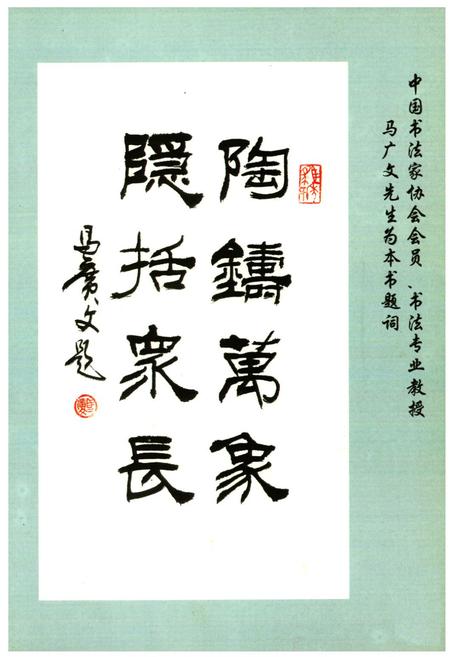 中国书法家协会会员、书法专业教授
马广文先生为本书题词
陶鑄萬象
隱括衆長
马廣文题